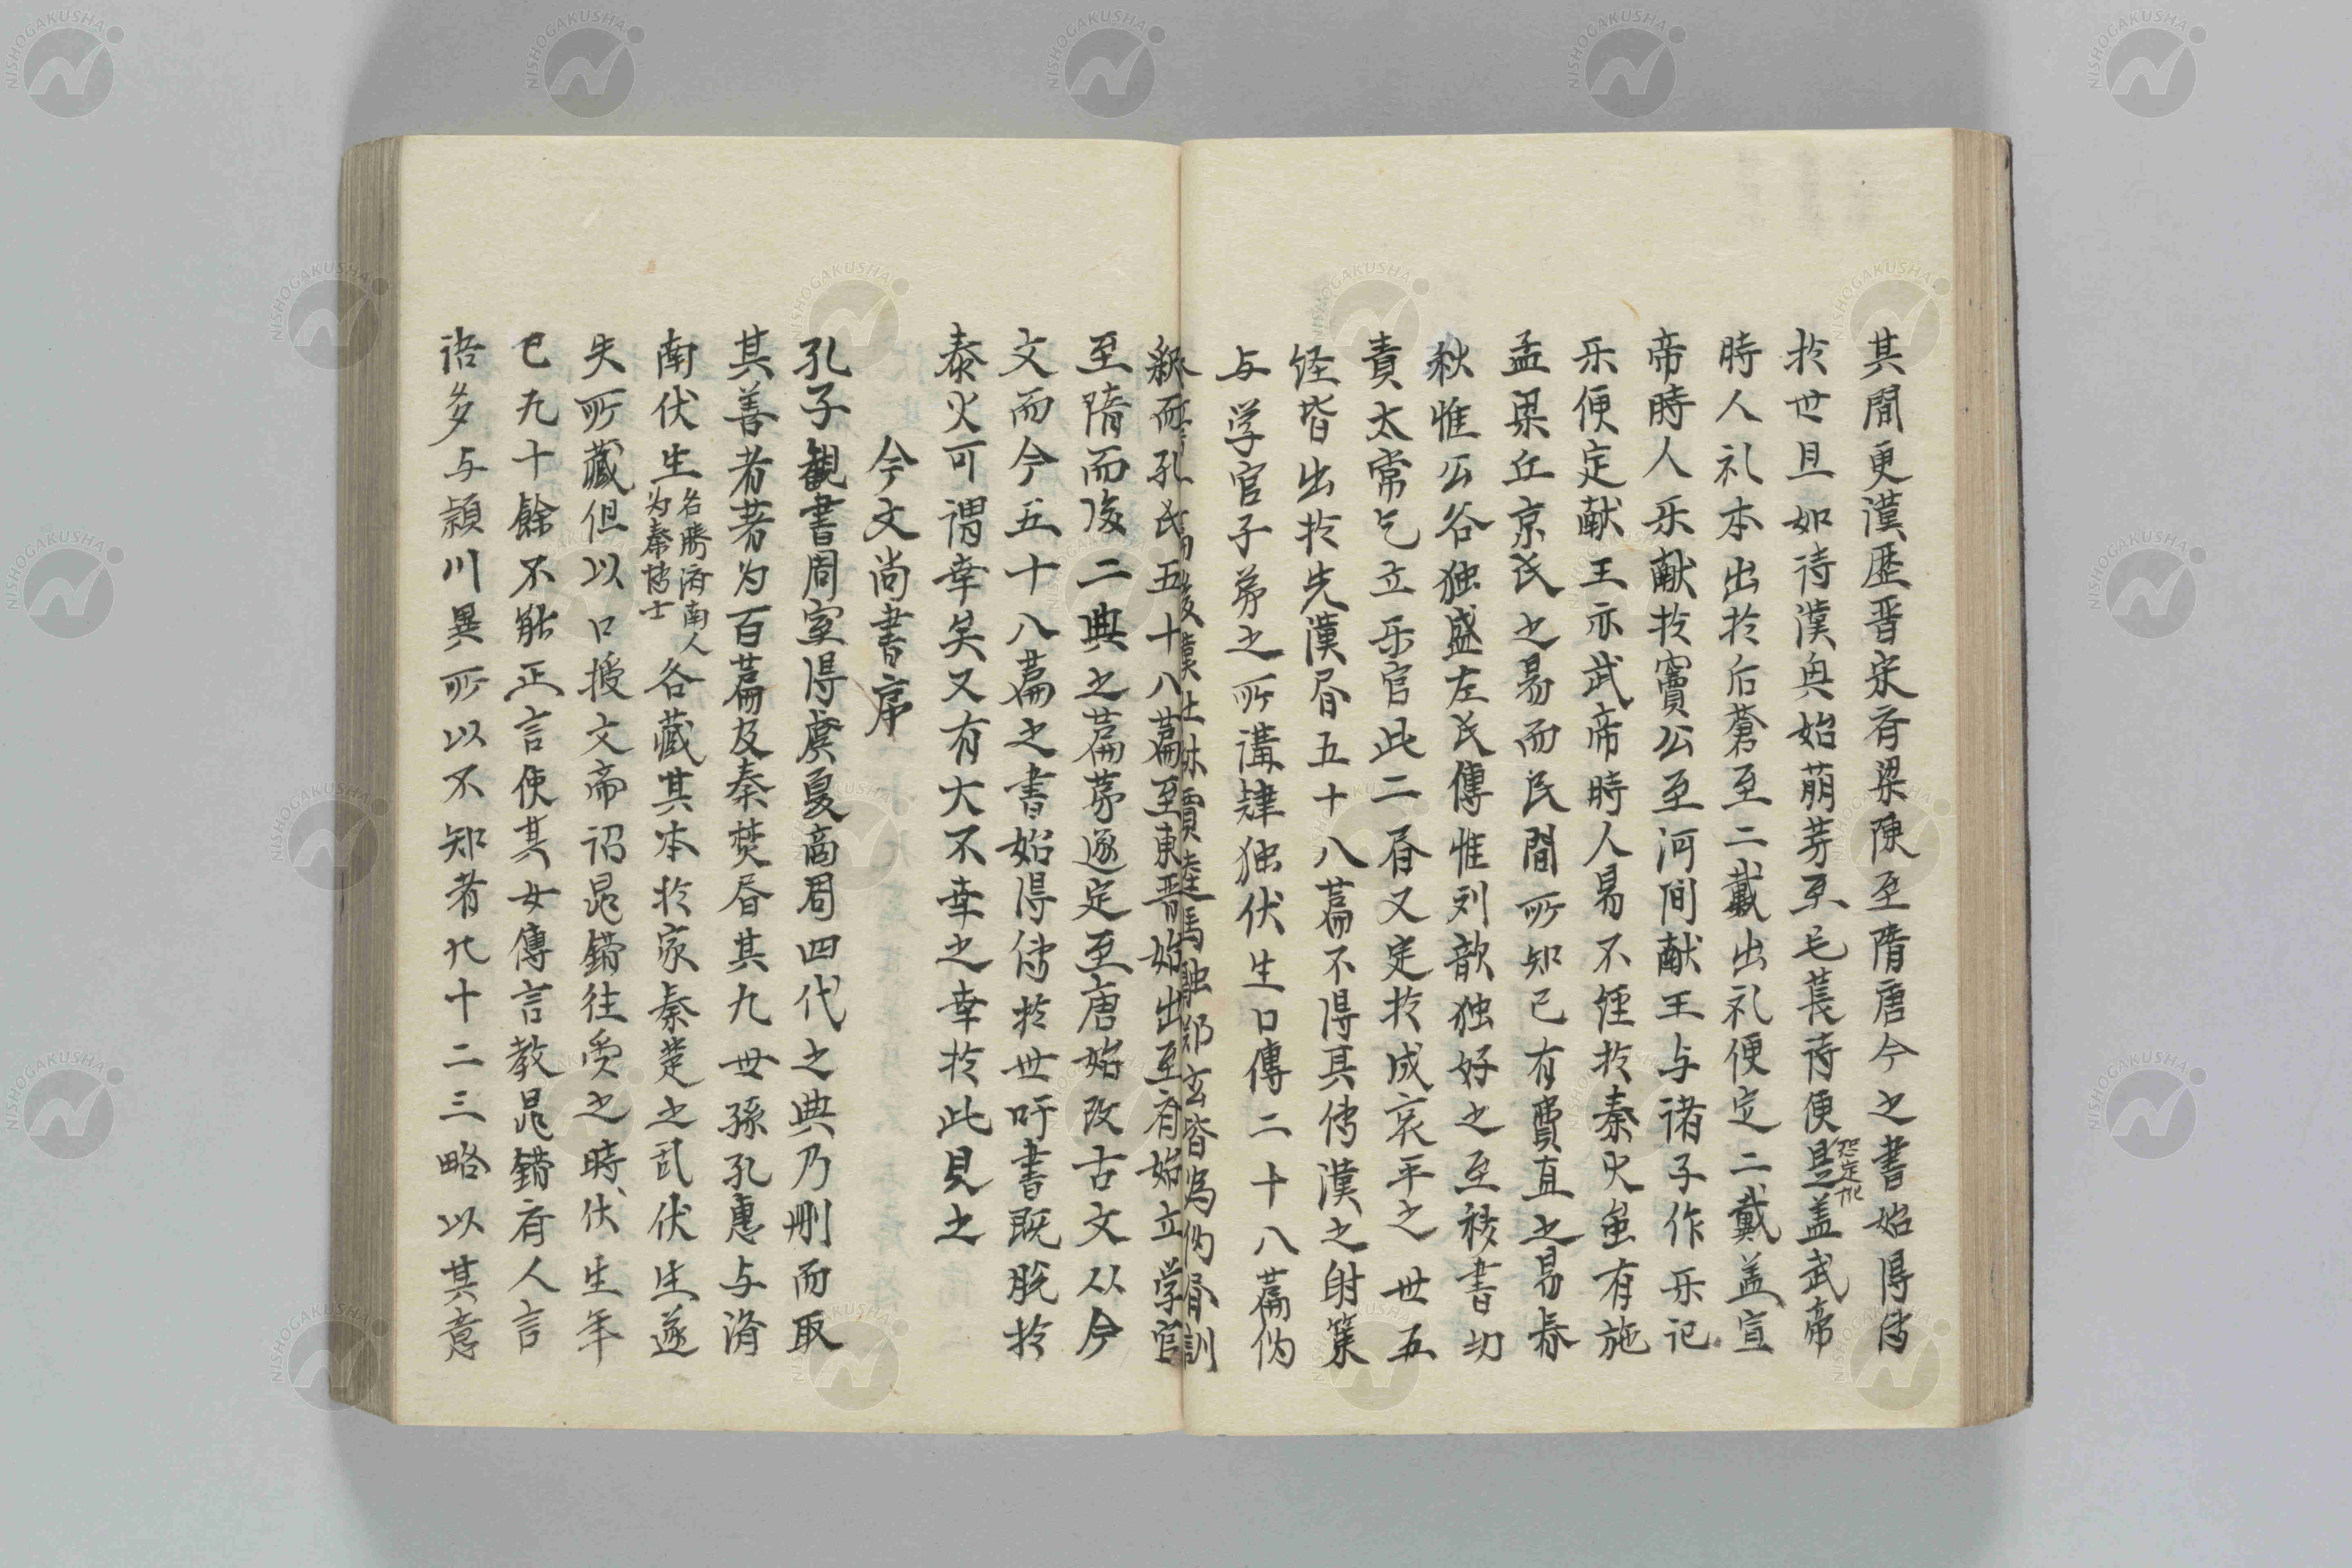 其間更漢歴晋宋斉梁陳至隋唐今之書始得传
扵世且如诗漢興始萌芽至毛萇诗便是盖武帝
恐定他
時人礼本出扵后蒼至二戴出礼便定二戴盖宣
帝時人乐献扵竇公至河间献王与诸子作乐记
乐便定献王亦武帝時人易不经扵秦火虽有施
孟梁丘京氏之易而民間所知已有費直之易春
秋惟公谷独盛左氏傳惟刘歆独好之至移書切
責太常乞立乐官此二者又定扵成哀平之世五
经皆出扵先漢昏五十八篇不得其传漢之射策
与学官子弟之所講肄独伏生口傳二十八篇伪
後漢杜林賈逵馬融郑玄皆為伪昏訓
孔氏五十八篇至東晋始出至斉始立学官
至隋而後二典之篇茅遂定至唐始改古文从今
文而今五十八篇之書始得传扵世吁書既脱扵
秦火可謂幸矣又有大不幸之幸扵此見之
今文尚書序
孔子観書周室得虞夏商周四代之典乃刪而取
其善者著为百篇及秦焚昏其九世孫孔惠与済
南伏生名勝済南人为秦博士各藏其本扵家秦楚之乱伏生遂
失所藏但以口授文帝诏晁錯往受之時伏生年
已九十餘不能正言使其女傳言教晁錯斉人言
语多与頴川異所以不知者凡十二三略以其意